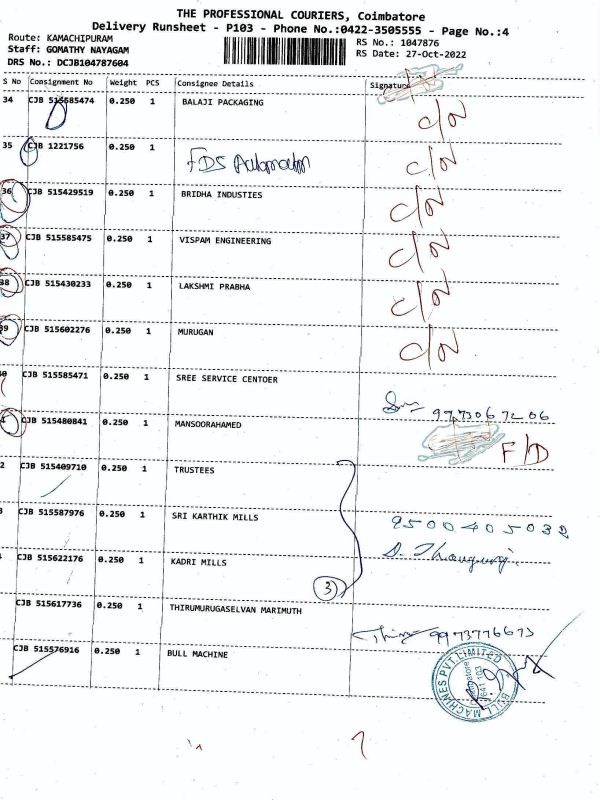 THE PROFESSIONAL COURIERS, Coimbatore
Delivery Runsheet - P103 - Phone No.:0422-3505555 - Page No.:4
Route: KAMACHIPURAM RS No.: 1047876
Staff: GOMATHY NAYAGAM RS Date: 27-Oct-2022
DRS No.: DCJB104787604
S No Consignment No Weight PCS Consignee Details Signature
34 CJB 515585474 0.250 1 BALAJI PACKAGING
35 CJB 1221756 0.250 1 FDS Automation
36 CJB 515429519 0.250 1 BRIDHA INDUSTIES
37 CJB 515585475 0.250 1 VISPAM ENGINEERING
38 CJB 515430233 0.250 1 LAKSHMI PRABHA
39 CJB 515602276 0.250 1 MURUGAN
0 CJB 515585471 0.250 1 SREE SERVICE CENTOER
9773067206
CJB 515480841 0.250 1 MANSOORAHAMED F/D
2 CJB 515409710 0.250 1 TRUSTEES
3 CJB 515587976 0.250 1 SRI KARTHIK MILLS 9500405032
CJB 515622176 0.250 1 KADRI MILLS
3
CJB 515617736 0.250 1 THIRUMURUGASELVAN MARIMUTH
9973776673
CJB 515576916 0.250 1 BULL MACHINE
BULL MACHINES PVT. LIMITED
Coimbatore
641 103